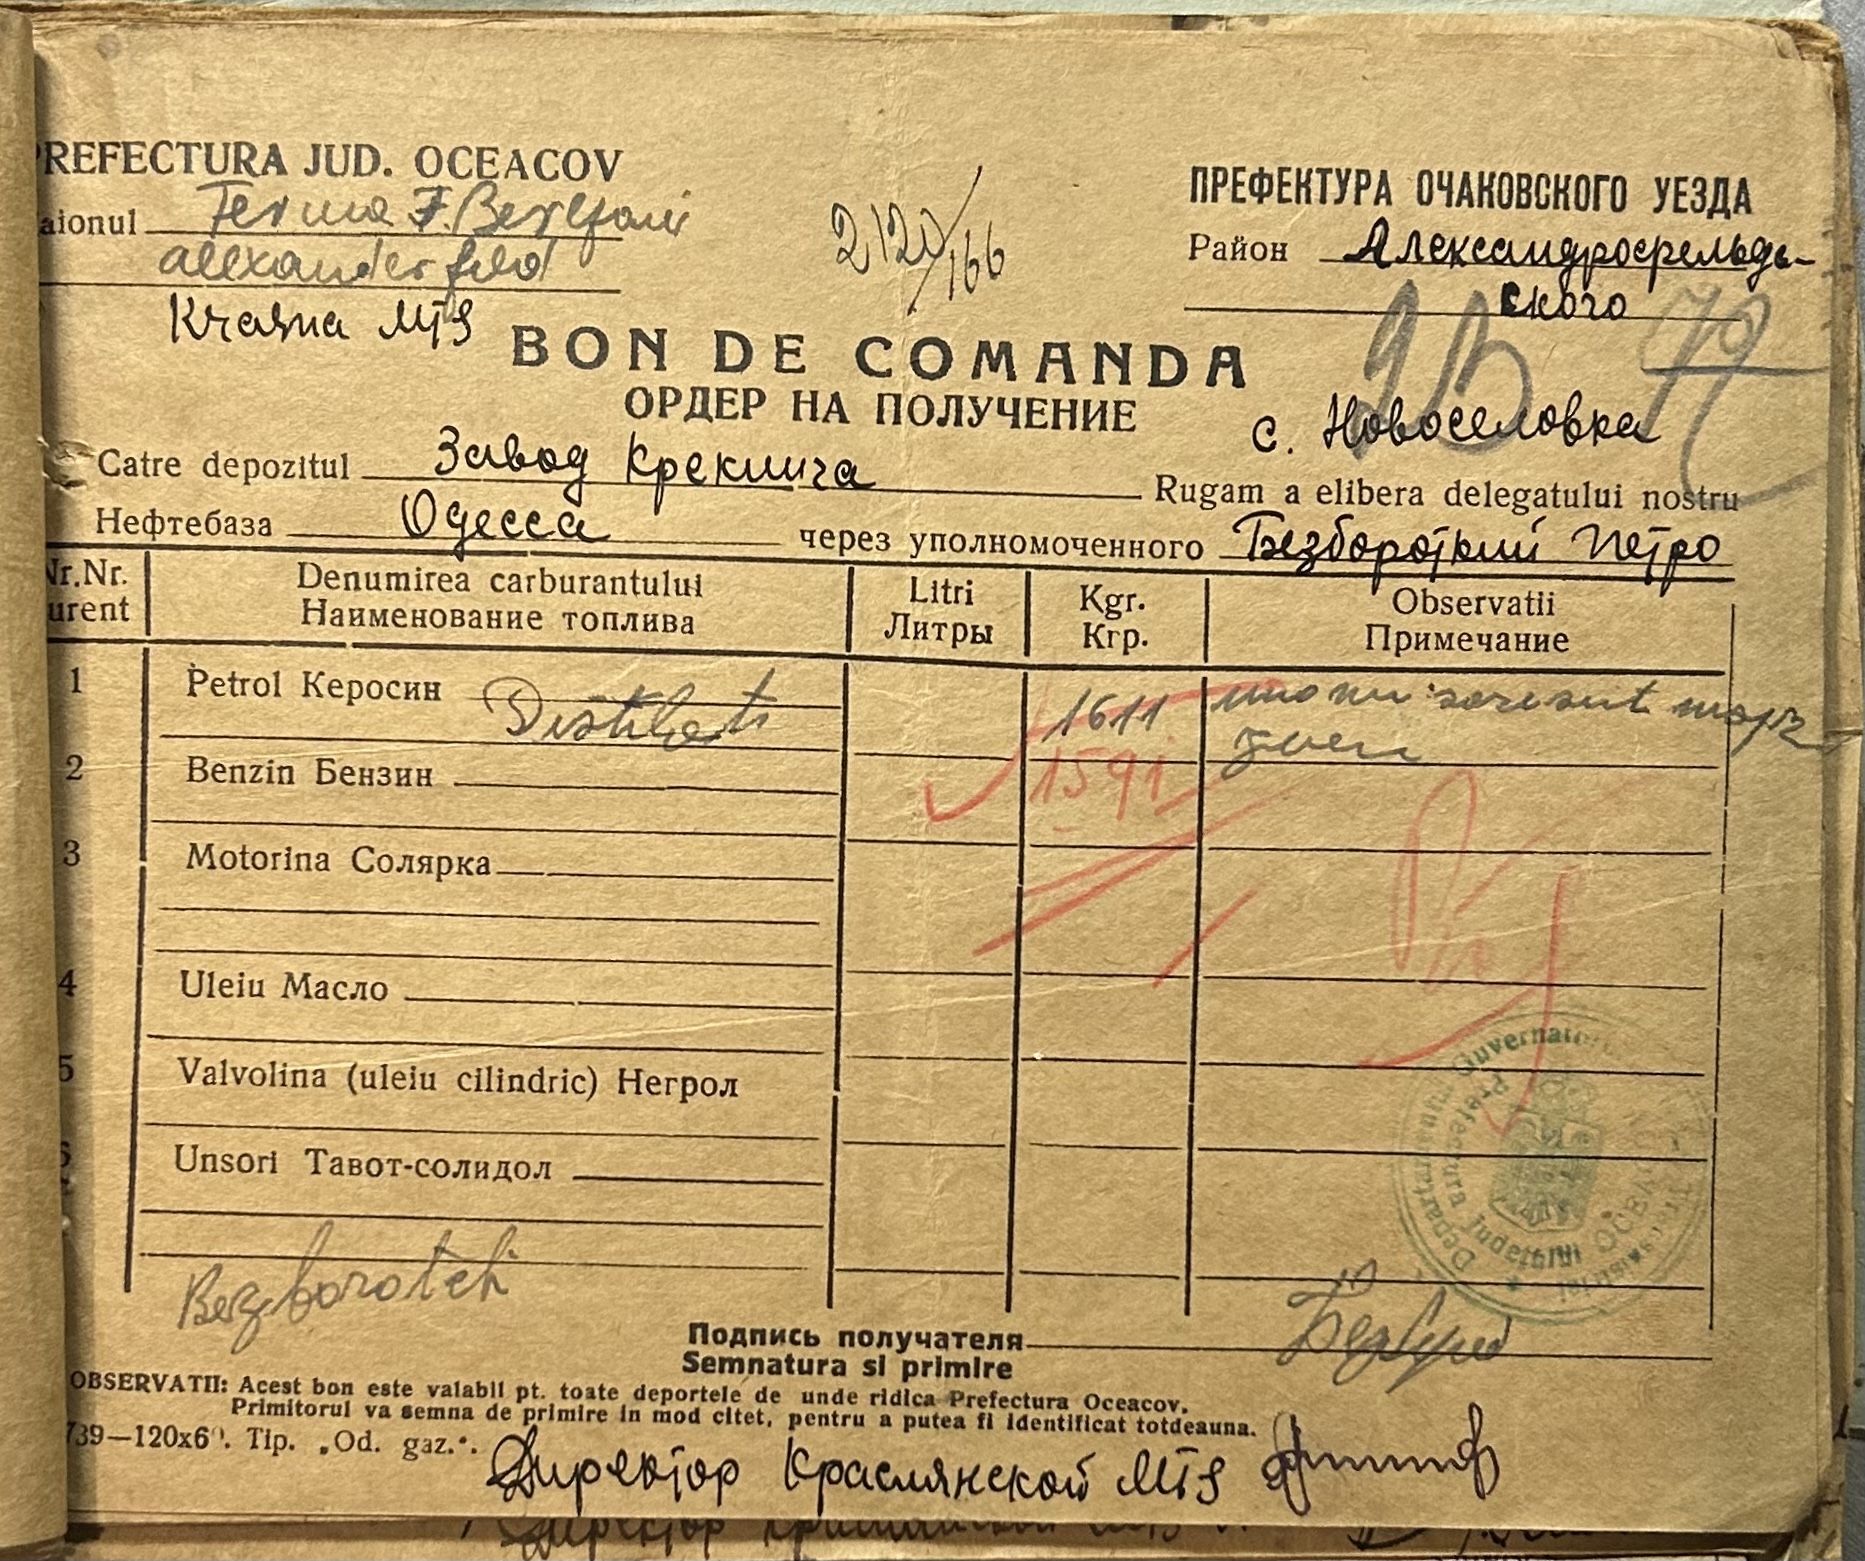 PREFECTURA JUD. OCEACOV
ПРЕФЕКТУРА ОЧАКОВСКОГО УЕЗДА
aionul Ferma F.
alexanderfeld
Район Александрофельдь-
ского
2120/166
Krasna MTS
BON DE COMANDA
ОРДЕР НА ПОЛУЧЕНИЕ
с. Новоселовка
Catre depozitul Завод Крекинга Rugam a elibera delegatului nostru
Нефтебаза Одесса через уполномоченного Безбороткий Петро
Nr.Nr. Denumirea carburantului Litri Kgr. Observatii
urent Наименование топлива Литры Кгр. Примечание
1 Petrol Керосин Distilat 1611
2 Benzin Бензин 1591
3 Motorina Солярка
4 Uleiu Масло
5 Valvolina (uleiu cilindric) Негрол
6 Unsori Тавот-солидол
Guvernatorul Transnistriei
Departamentul
Prefectura Judetului OCEACOV
Bezborotch
Подпись получателя
Semnatura si primire
OBSERVATII: Acest bon este valabil pt. toate deportele de unde ridica Prefectura Oceacov.
Primitorul va semna de primire in mod citet, pentru a putea fi identificat totdeauna.
739—120x6. Tip. „Od. gaz.".
Директор Краснянской MTS